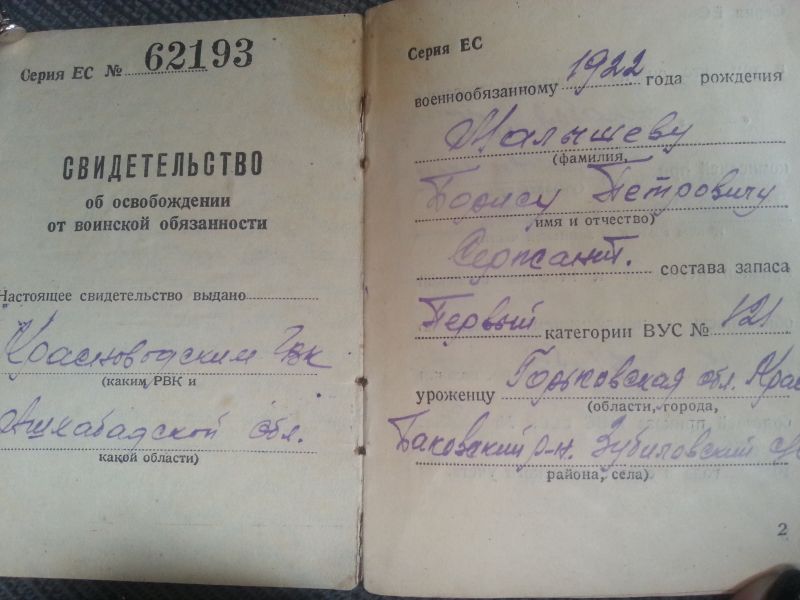 Серия ЕС № 62193
СВИДЕТЕЛЬСТВО
об освобождении
от воинской обязанности
Настоящее свидетельство выдано
Красноводским ГВК
(каким РВК и
Ашхабадской обл.
какой области)
Серия ЕС
военнообязанному 1922 года рождения
Малышеву
(фамилия,
Борису Петровичу
имя и отчество)
Сержант. состава запаса
Первый категории ВУС № 121
уроженцу Горьковская обл. Крас
(области, города,
Баковский р-н. Зубиловский с/с
района, села)
2